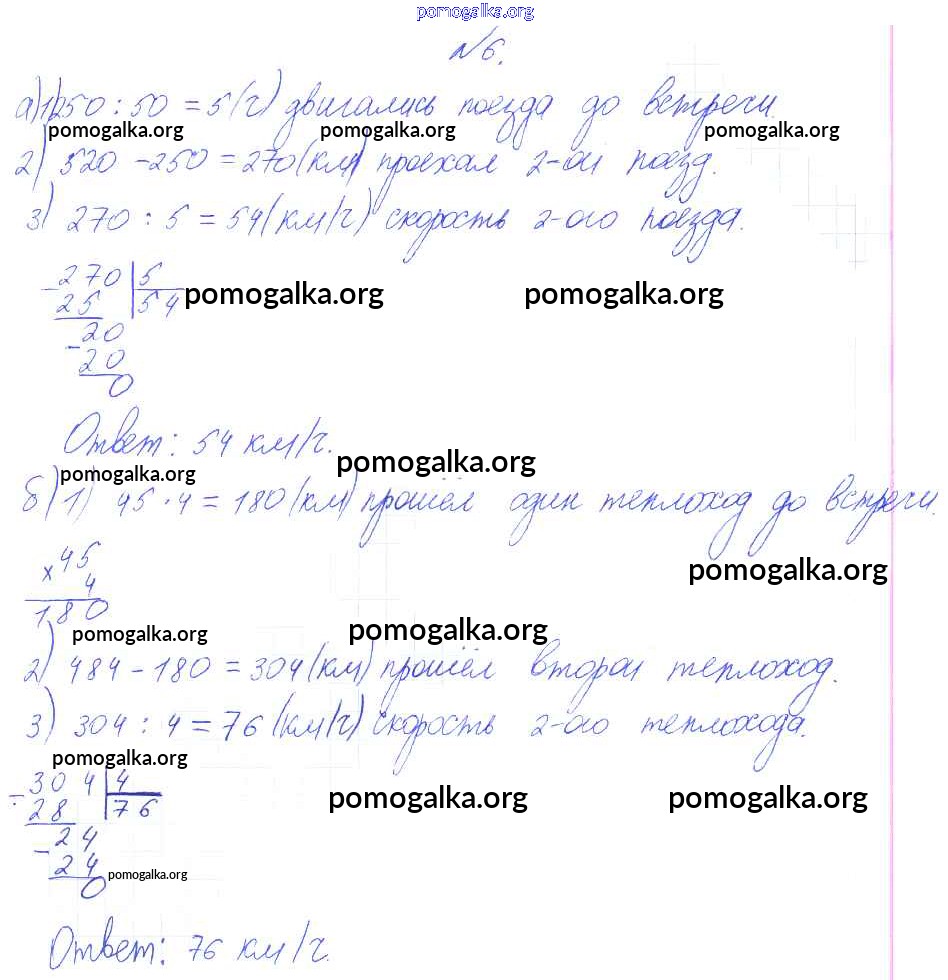 pomogalka.org
№6.
а)1)250 : 50 = 5(ч) двигались поезда до встречи.
pomogalka.org pomogalka.org pomogalka.org
2) 520 - 250 = 270(км) проехал 2-ой поезд.
3) 270 : 5 = 54(км/ч) скорость 2-ого поезда.
- 270 | 5
25 54 pomogalka.org pomogalka.org
- 20
20
0
Ответ: 54 км/ч.
pomogalka.org pomogalka.org
б) 1) 45 · 4 = 180 (км) прошёл один теплоход до встречи.
x 45
4 pomogalka.org
180
pomogalka.org pomogalka.org
2) 484 - 180 = 304(км) прошёл второй теплоход.
3) 304 : 4 = 76 (км/ч) скорость 2-ого теплохода.
pomogalka.org
- 304 | 4
28 76 pomogalka.org pomogalka.org
- 24
24
0 pomogalka.org
Ответ: 76 км/ч.